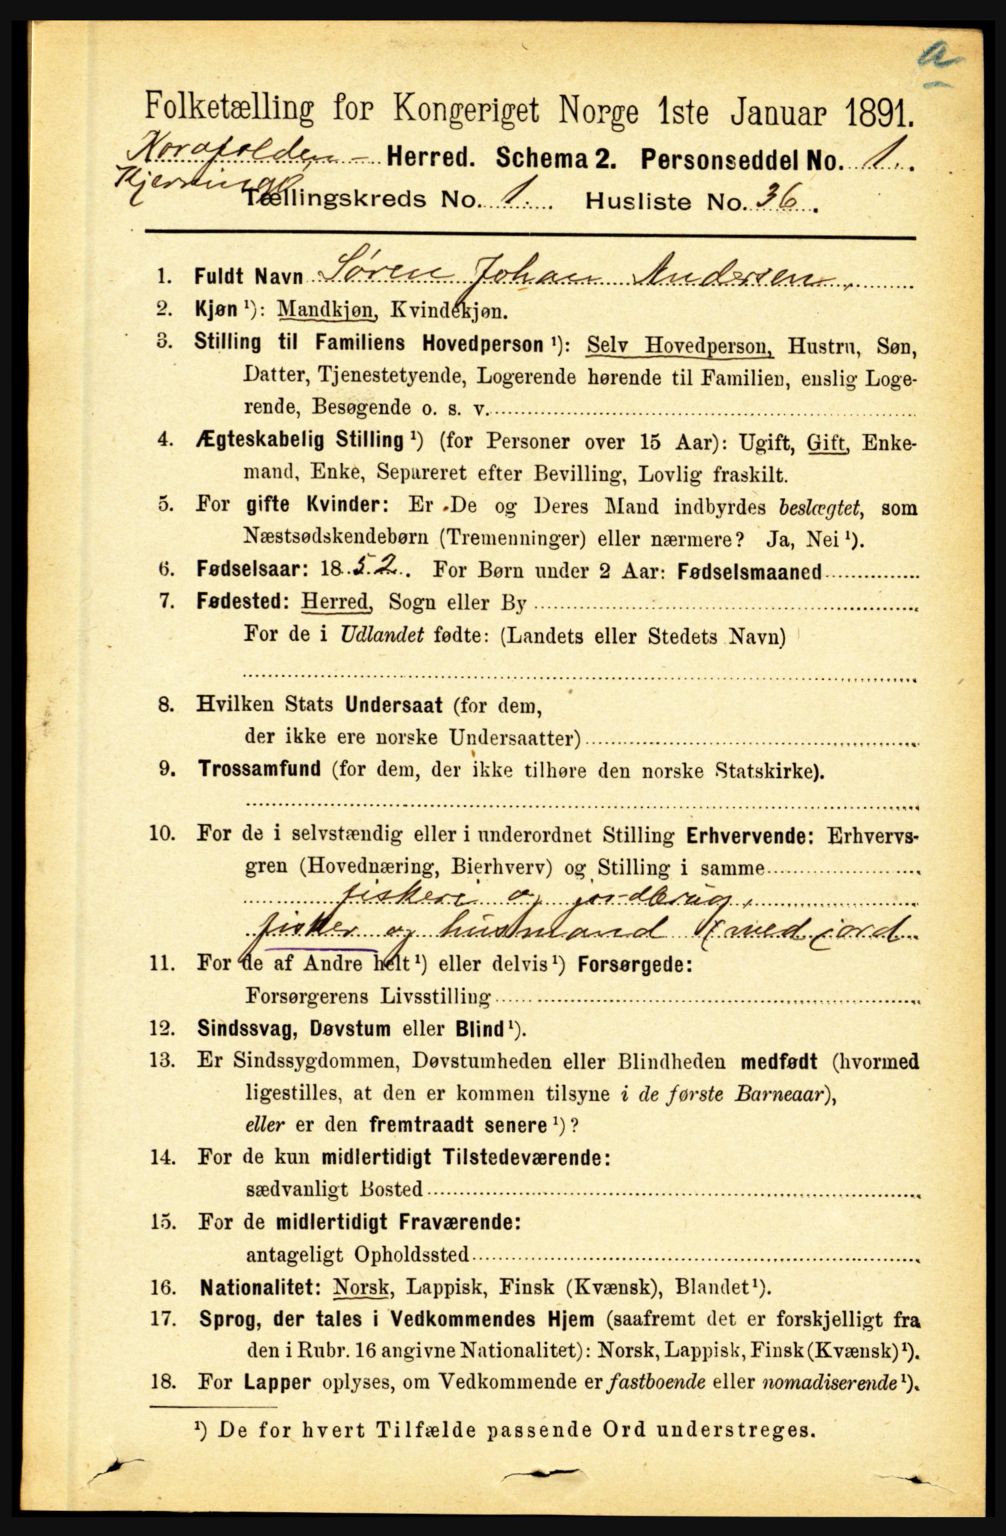 a
Folketælling for Kongeriget Norge 1ste Januar 1891.
Nordfolden- Herred. Schema 2. Personseddel No. 1.
Kjerringø
Tællingskreds No. 1. Husliste No. 36.
1. Fuldt Navn Søren Johan Andersen,
2. Kjøn¹): Mandkjøn, Kvindekjøn.
3. Stilling til Familiens Hovedperson¹): Selv Hovedperson, Hustru, Søn,
Datter, Tjenestetyende, Logerende hørende til Familien, enslig Loge-
rende, Besøgende o. s. v.
4. Ægteskabelig Stilling¹) (for Personer over 15 Aar): Ugift, Gift, Enke-
mand, Enke, Separeret efter Bevilling, Lovlig fraskilt.
5. For gifte Kvinder: Er De og Deres Mand indbyrdes beslægtet, som
Næstsødskendebørn (Tremenninger) eller nærmere? Ja, Nei¹).
6. Fødselsaar: 1852. For Børn under 2 Aar: Fødselsmaaned
7. Fødested: Herred, Sogn eller By
For de i Udlandet fødte: (Landets eller Stedets Navn)
8. Hvilken Stats Undersaat (for dem,
der ikke ere norske Undersaatter)
9. Trossamfund (for dem, der ikke tilhøre den norske Statskirke).
10. For de i selvstændig eller i underordnet Stilling Erhvervende: Erhvervs-
gren (Hovednæring, Bierhverv) og Stilling i samme
fiskeri og jordbrug,
fisker og husmand (med jord
11. For de af Andre helt¹) eller delvis¹) Forsørgede:
Forsørgerens Livsstilling
12. Sindssvag, Døvstum eller Blind¹).
13. Er Sindssygdommen, Døvstumheden eller Blindheden medfødt (hvormed
ligestilles, at den er kommen tilsyne i de første Barneaar),
eller er den fremtraadt senere¹)?
14. For de kun midlertidigt Tilstedeværende:
sædvanligt Bosted
15. For de midlertidigt Fraværende:
antageligt Opholdssted
16. Nationalitet: Norsk, Lappisk, Finsk (Kvænsk), Blandet¹).
17. Sprog, der tales i Vedkommendes Hjem (saafremt det er forskjelligt fra
den i Rubr. 16 angivne Nationalitet): Norsk, Lappisk, Finsk (Kvænsk)¹).
18. For Lapper oplyses, om Vedkommende er fastboende eller nomadiserende¹).
¹) De for hvert Tilfælde passende Ord understreges.